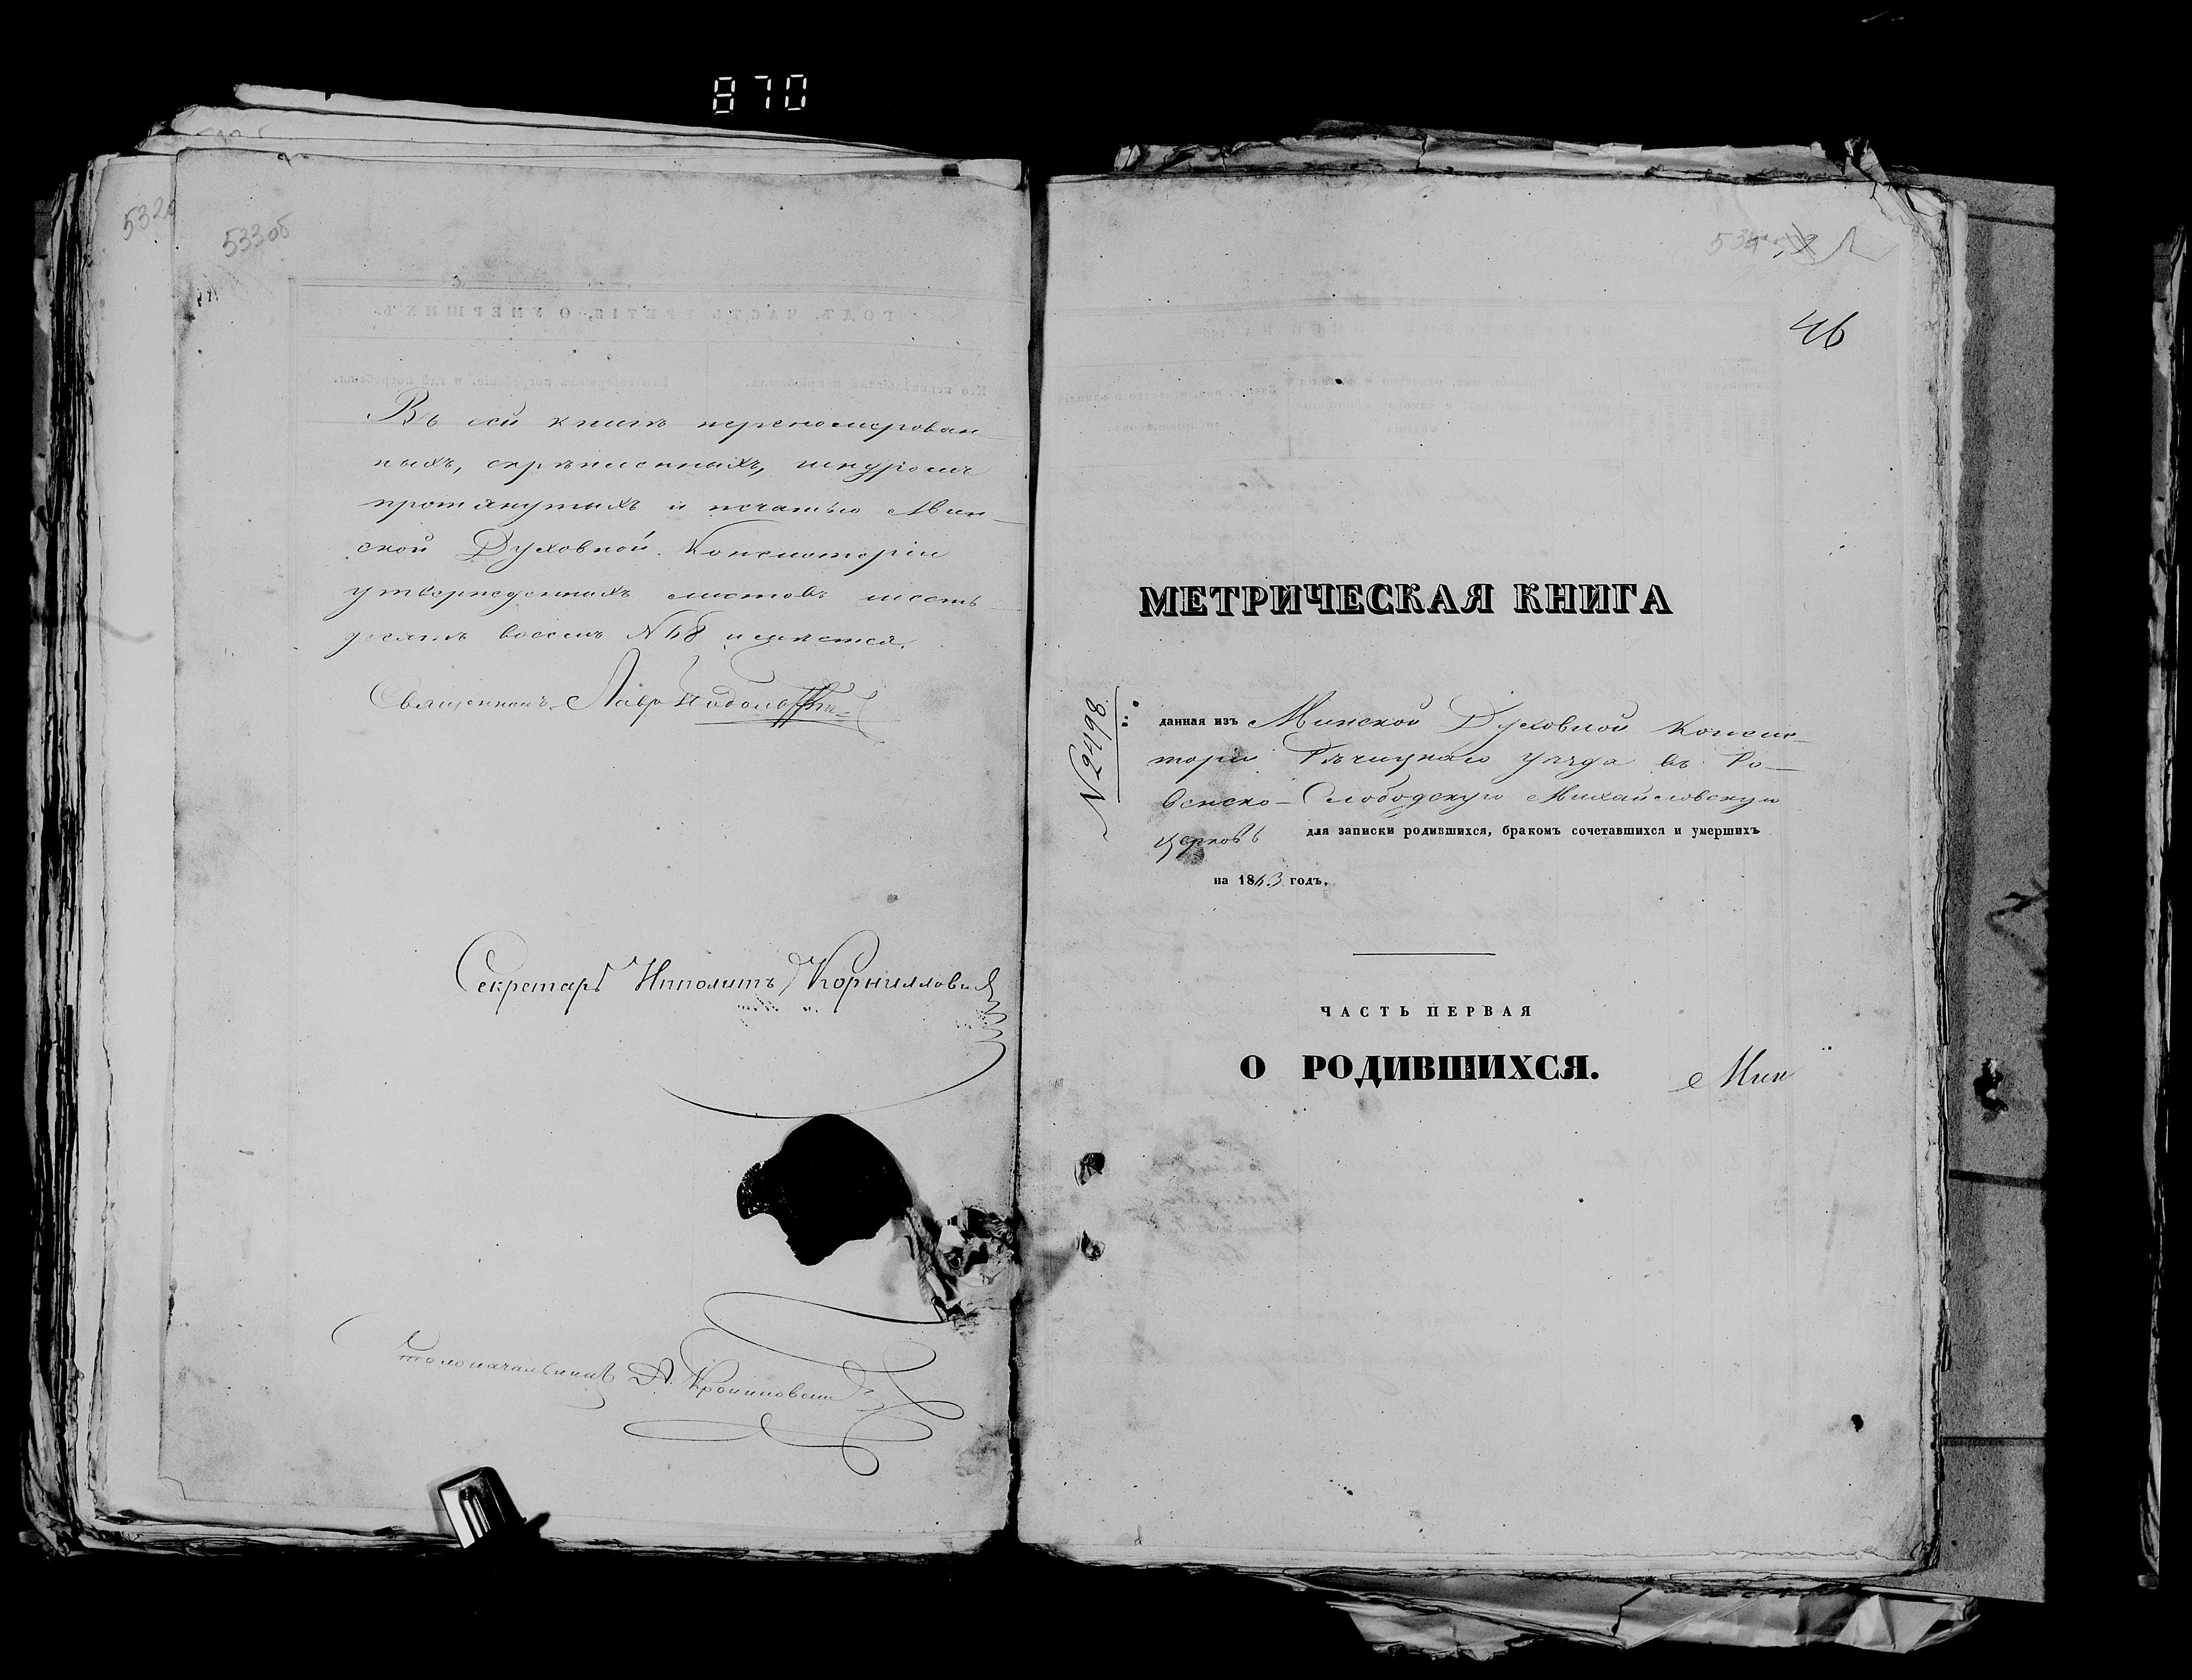 870
532
533об
Въ сей книгѣ перенумерован-
ныхъ, скрѣпленныхъ, шнуромъ
протянутыхъ и печатью Мин-
ской Духовной Консисторіи
утвержденныхъ листовъ шесть-
десятъ восемь №68 имѣется.
Священникъ Лавр
Секретарь Ипполитъ Корнилович
Столоначальникъ А.
46
МЕТРИЧЕСКАЯ КНИГА
№2498
данная изъ Минской Духовной Консис-
торіи Рѣчицкаго уѣзда въ Ро-
венско-Слободскую Михайловскую
церковь для записки родившихся, бракомъ сочетавшихся и умершихъ
на 1863 годъ.
ЧАСТЬ ПЕРВАЯ
О РОДИВШИХСЯ.
Мин